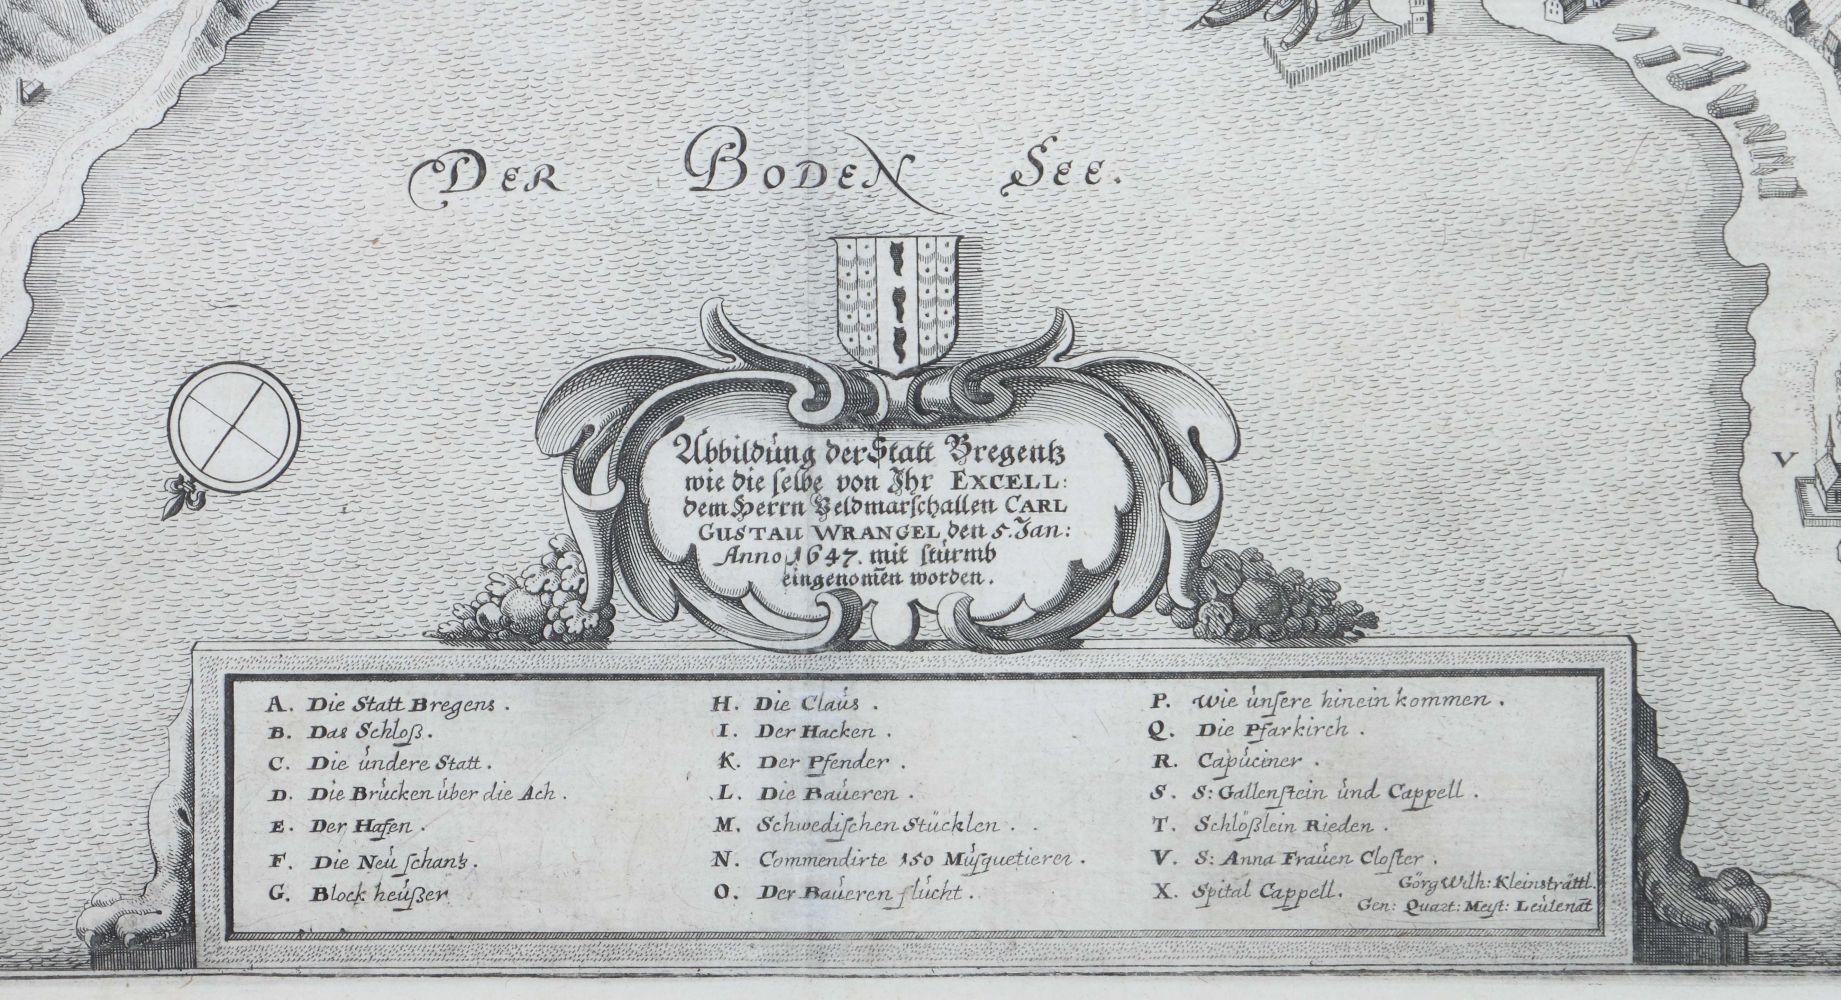 DER BODEN See.
Abbildung der Statt Bregentz
wie die selbe von Ihr EXCELL:
dem Herrn Veldmarschallen CARL
GUSTAU WRANGEL den 5. Jan:
Anno 1647. mit stürmb
eingenom̄en worden.
A. Die Statt Bregens.
B. Das Schloß.
C. Die úndere Statt.
D. Die Brúcken úber die Ach.
E. Der Hafen.
F. Die Neú schantz.
G. Block heúßer
H. Die Claús.
I. Der Hacken.
K. Der Pfender.
L. Die Baúeren.
M. Schwedischen Stücklen.
N. Commendirte 150 Músquetierer.
O. Der Baúeren flúcht.
P. Wie únsere hinein kommen.
Q. Die Pfarkirch.
R. Capúciner.
S. S: Gallenstein únd Cappell.
T. Schlößlein Rieden.
V. S: Anna Fraúen Closter.
X. Spital Cappell.
Görg Wilh: Kleinsträttl.
Gen: Quart: Meist: Leútenāt
V